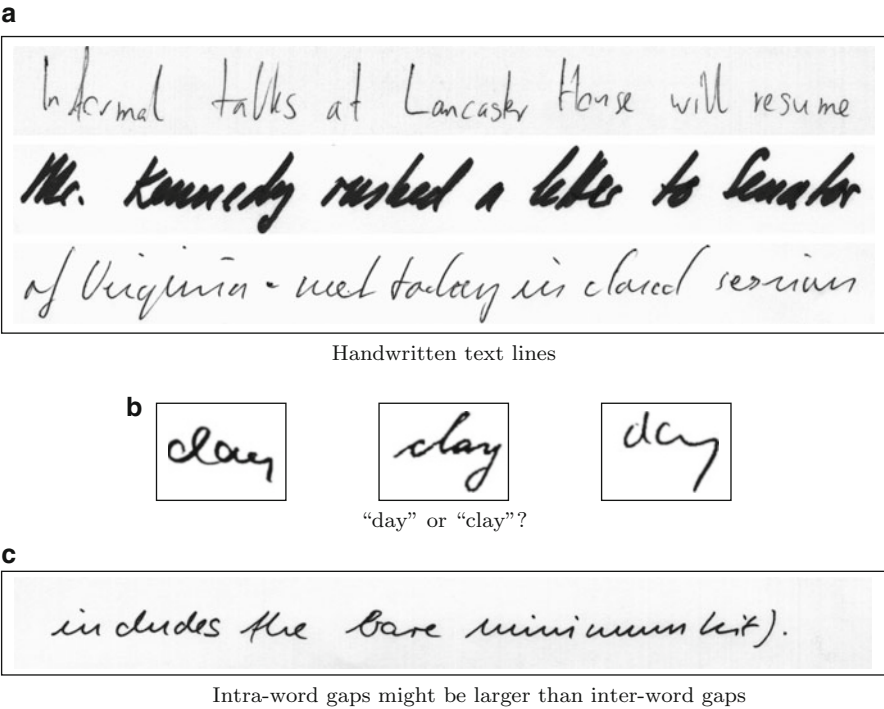 a
Informal talks at Lancaster House will resume
Mr. Kennedy rushed a letter to Senator
of Virginia - met today in closed session
Handwritten text lines
b
clay clay day
"day" or "clay"?
c
includes the bare minimum kit).
Intra-word gaps might be larger than inter-word gaps